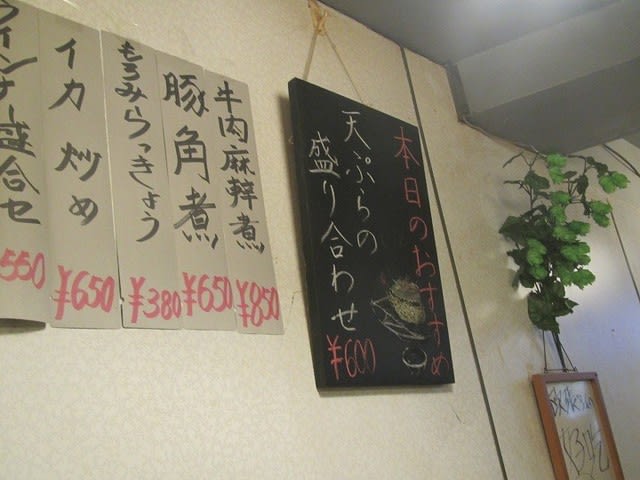 本日のおすすめ
天ぷらの
盛り合わせ
¥600
牛肉麻辣煮
¥850
豚角煮
¥650
もろみらっきょう
¥380
イカ炒め
¥650
ウインナー盛合せ
550